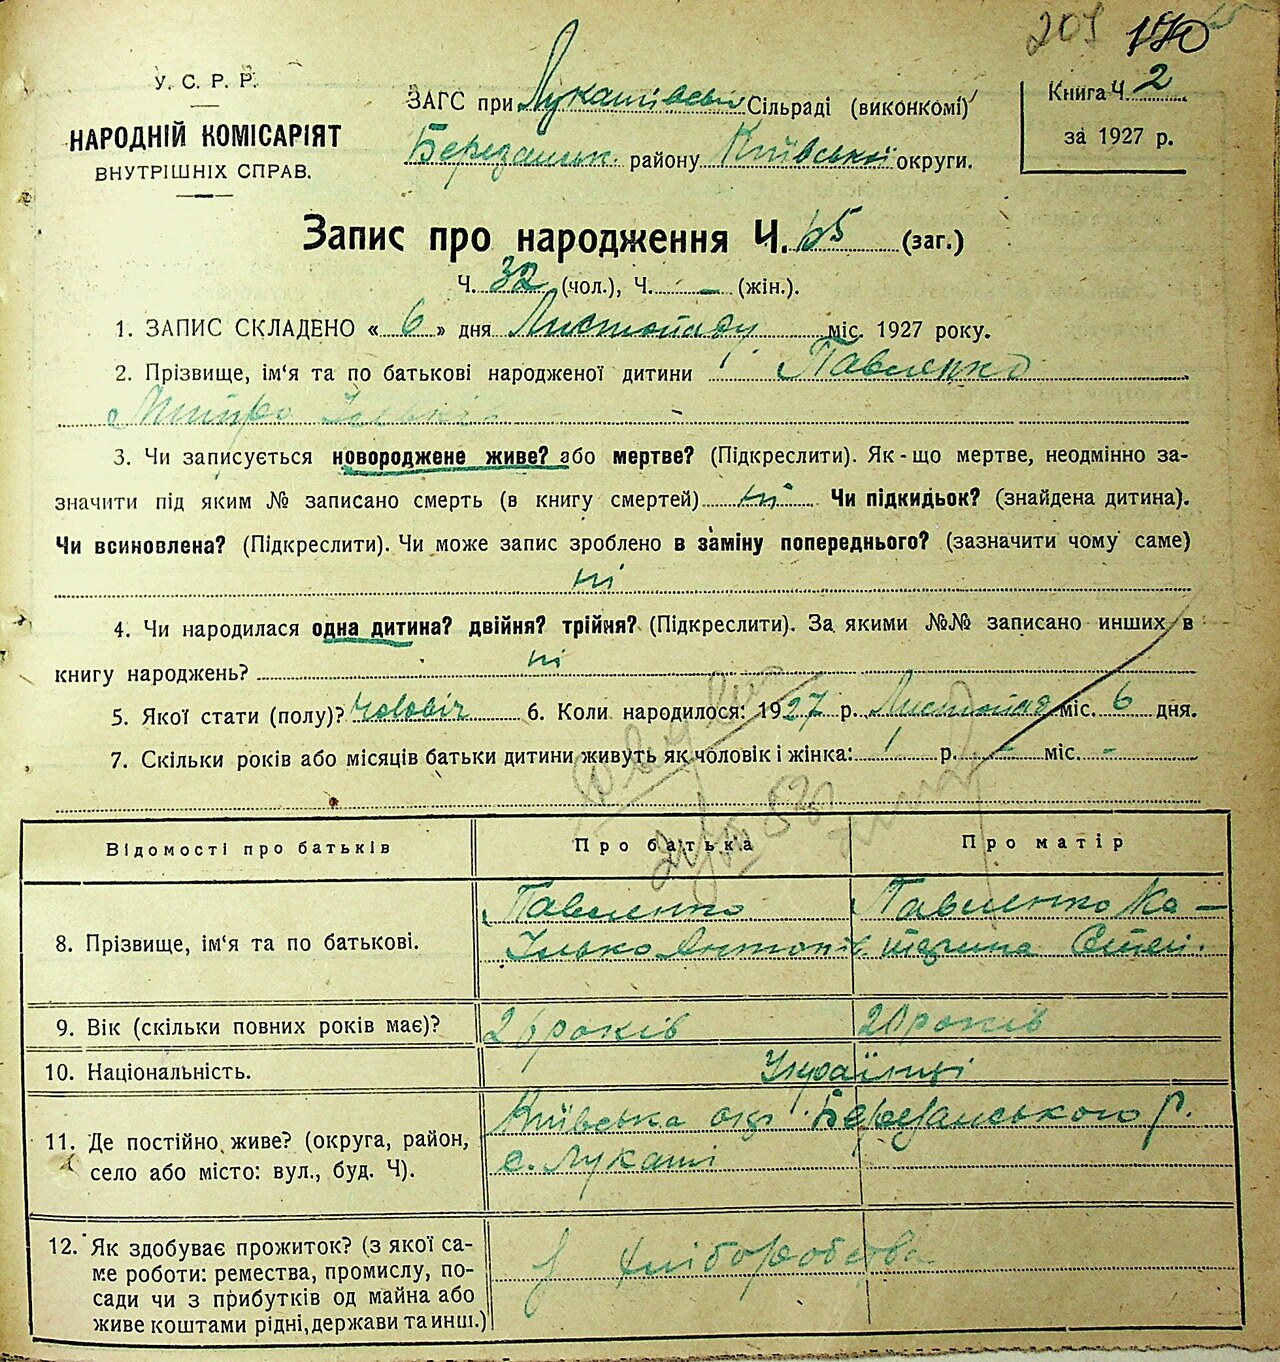 205 170
У. С. Р. Р.
НАРОДНІЙ КОМІСАРІЯТ
ВНУТРІШНІХ СПРАВ.
ЗАГС при Лукашівській Сільраді (виконкомі)
Березанськ. району Київської округи.
Книга Ч. 2
за 1927 р.
Запис про народження Ч. 65 (заг.)
Ч. 32 (чол.), Ч. – (жін.).
1. ЗАПИС СКЛАДЕНО « 6 » дня Листопаду міс. 1927 року.
2. Прізвище, ім‘я та по батькові народженої дитини Павленко
Дмитро Ільків
3. Чи записується новороджене живе? або мертве? (Підкреслити). Як-що мертве, неодмінно за-
значити під яким № записано смерть (в книгу смертей) ні Чи підкидьок? (знайдена дитина).
Чи всиновлена? (Підкреслити). Чи може запис зроблено в заміну попереднього? (зазначити чому саме)
ні
4. Чи народилася одна дитина? двійня? трійня? (Підкреслити). За якими №№ записано инших в
книгу народжень? ні
5. Якої стати (полу)? чоловіч 6. Коли народилося: 1927 р. Листопад міс. 6 дня.
7. Скільки років або місяців батьки дитини живуть як чоловік і жінка: 1 р. – міс. –
Відомості про батьків Про батька Про матір
8. Прізвище, ім‘я та по батькові. Павленко Павленко Ка-
Ілько Антонів. терина Степ.
9. Вік (скільки повних років має)? 26 років 20 років
10. Національність. Українці
11. Де постійно живе? (округа, район, Київська окр. Березанського р.
село або місто: вул., буд. Ч). с. Лукаші
12. Як здобуває прожиток? (з якої са-
ме роботи: ремества, промислу, по- хліборобства
сади чи з прибутків од майна або
живе коштами рідні, держави та инш.)